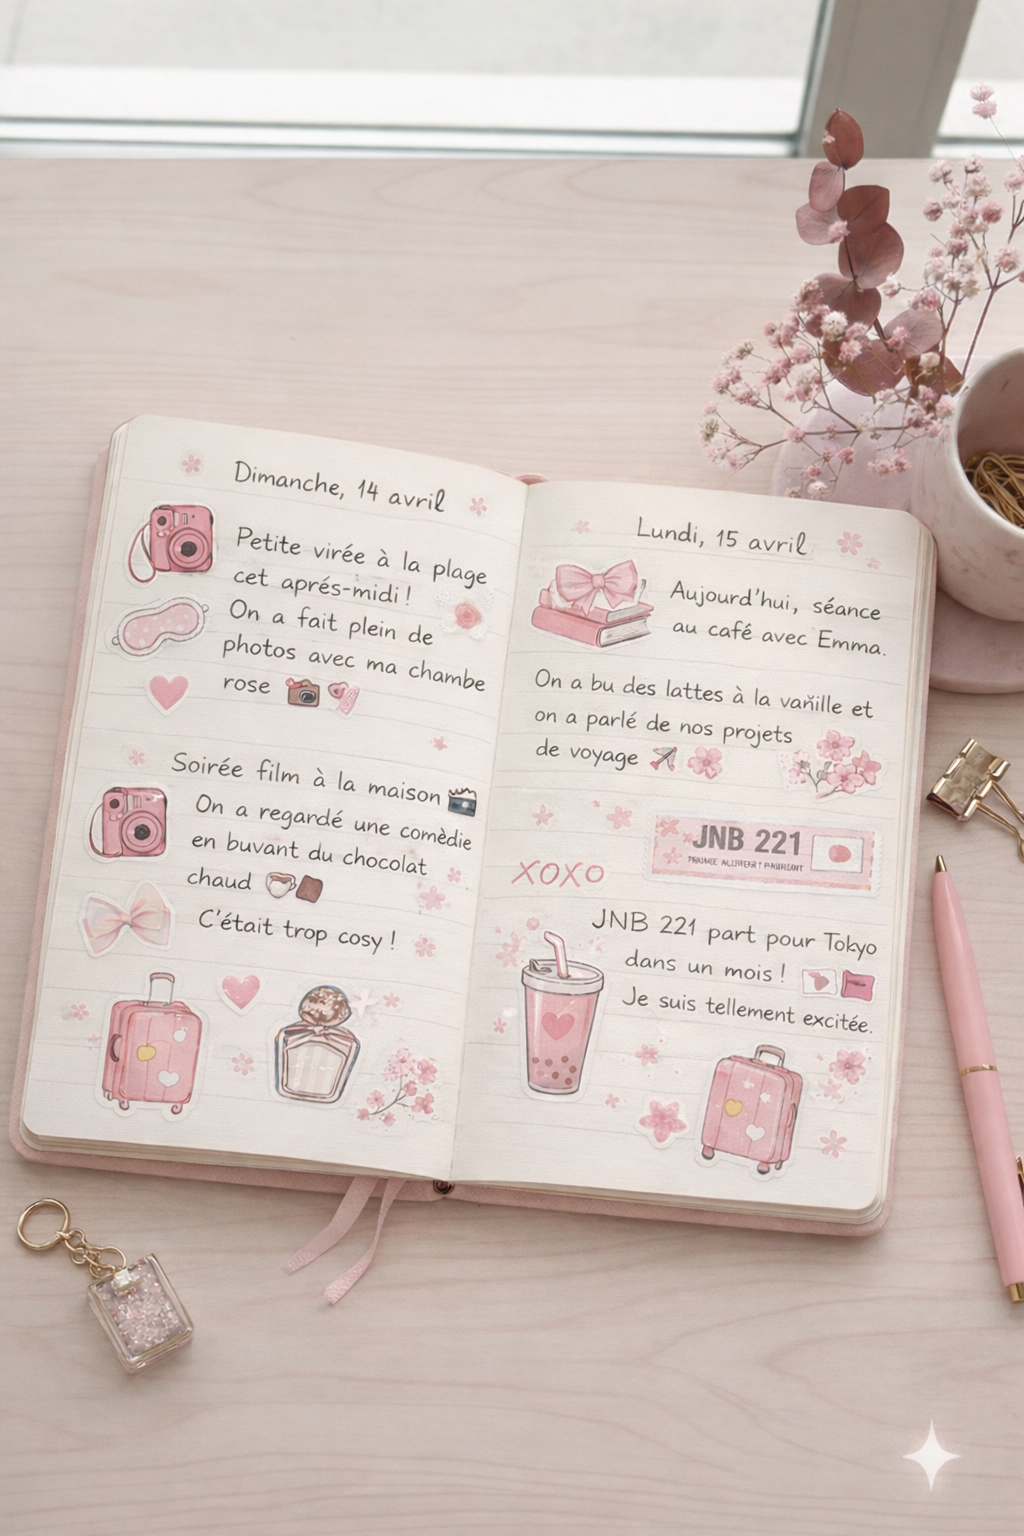 Dimanche, 14 avril
Petite virée à la plage
cet aprés-midi !
On a fait plein de
photos avec ma chambe
rose
Soirée film à la maison
On a regardé une comèdie
en buvant du chocolat
chaud
C'était trop cosy !
Lundi, 15 avril
Aujourd'hui, séance
au café avec Emma.
On a bu des lattes à la vañille et
on a parlé de nos projets
de voyage
JNB 221
XOXO
JNB 221 part pour Tokyo
dans un mois !
Je suis tellement excitée.